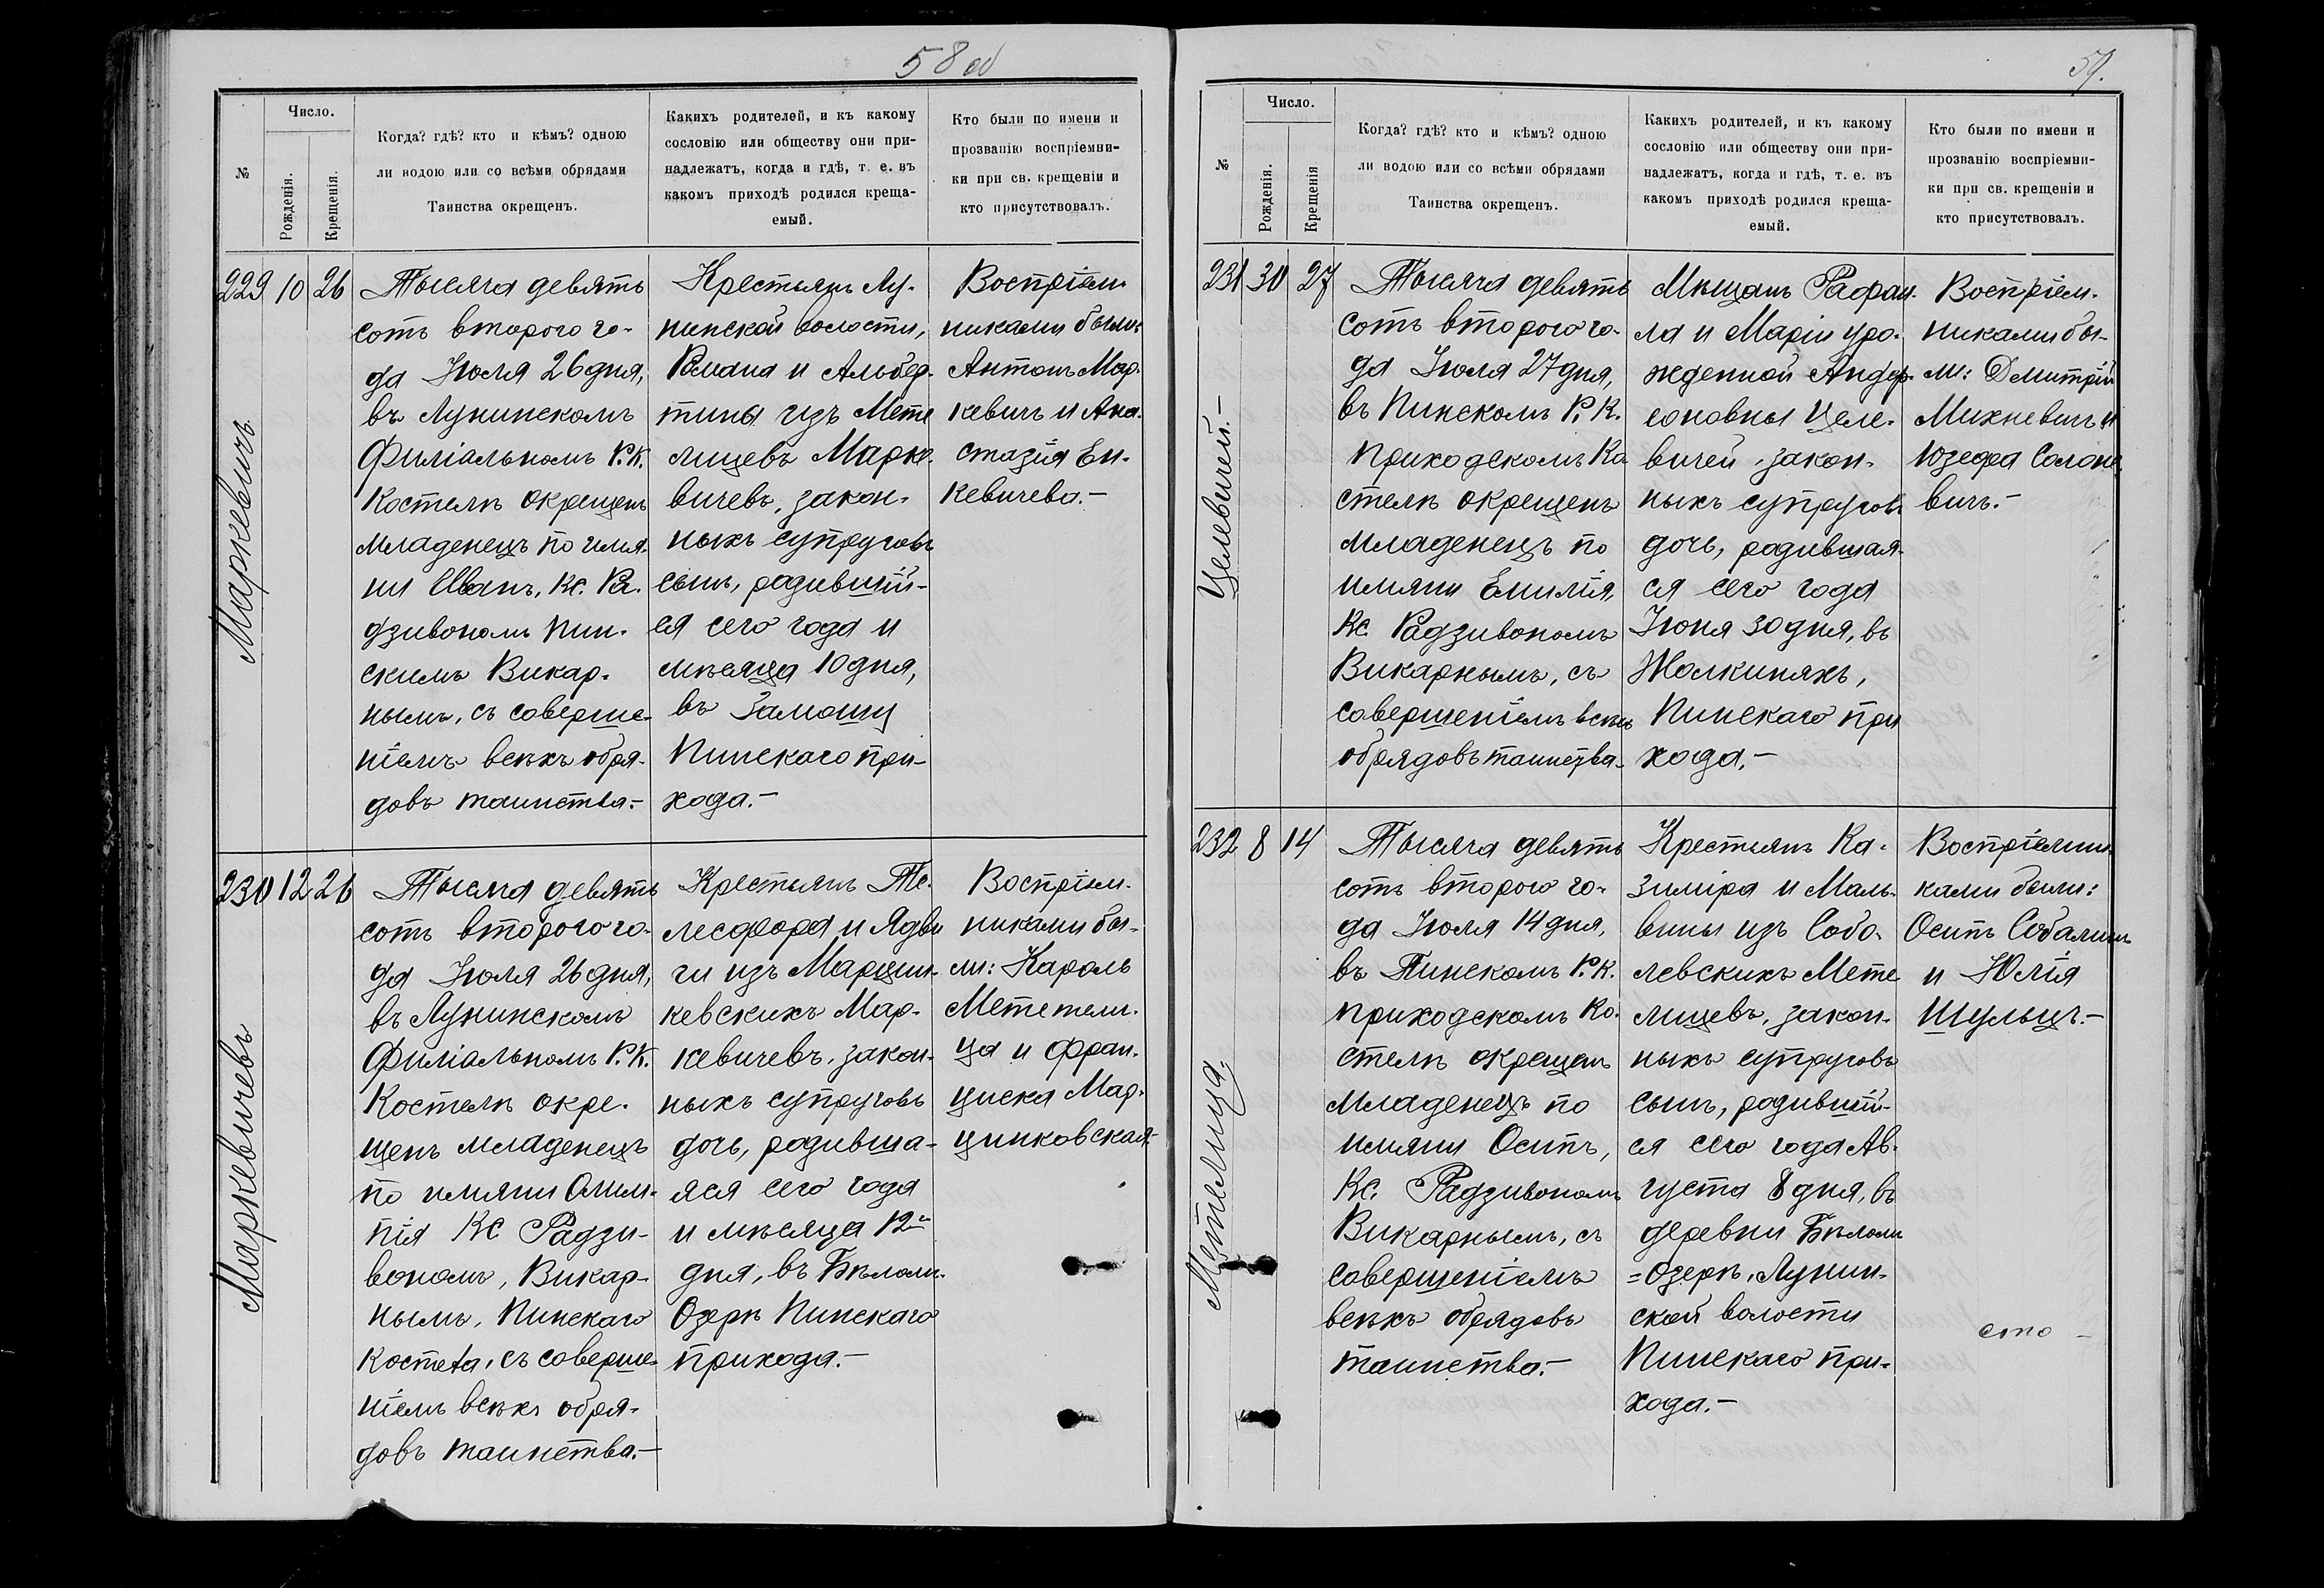 58 об
№
Число.
Рожденія.
Крещенія.
Когда? гдѣ? кто и кѣмъ? одною
ли водою или со всѣми обрядами
Таинства окрещенъ.
Какихъ родителей, и къ какому
сословію или обществу они при-
надлежатъ, когда и гдѣ, т. е. въ
какомъ приходѣ родился креща-
емый.
Кто были по имени и
прозванію воспріемни-
ки при св. крещеніи и
кто присутствовалъ.
Маркевичъ
229 10 26
Тысяча девять
сотъ второго го-
да Іюля 26 дня,
въ Лунинскомъ
Филіальномъ Р.К.
Костелѣ окрещенъ
младенецъ по имя-
ни Иванъ, Кс. Ра-
дзивономъ Пин-
скимъ Викар-
нымъ, съ соверше-
ніемъ всѣхъ обря-
довъ таинства.-
Крестьянъ Лу-
нинской волости,
Романа и Альбер-
тины изъ Мете
лицевъ Марке-
вичевъ, закон-
ныхъ супруговъ
сынъ, родившій-
ся сего года и
мѣсяца 10 дня,
въ Замошу
Пинскаго при-
хода.-
Воспріем-
никами были:
Антонъ Мар-
кевичъ и Ана-
стазія Ен-
кевичева.-
Маркевичевъ
230 12 26
Тысяча девять
сотъ второго го-
да Іюля 26 дня,
въ Лунинскомъ
Филіальномъ Р.К.
Костелѣ окре-
щенъ младенецъ
по имяни Олим-
пія Кс Радзи-
вономъ, Викар-
нымъ, Пинскаго
Костела, съ соверше-
ніемъ всѣхъ обря-
довъ таинства.-
Крестьянъ Те-
лесфора и Ядви
ги изъ Марцин-
кевскихъ Мар-
кевичевъ, закон-
ныхъ супруговъ
дочь, родивша-
яся сего года
и мѣсяца 12-
дня, въ Бѣломъ-
Озерѣ Пинскаго
прихода.-
Воспріем-
никами бы-
ли: Кароль
Метели-
ца и Фран-
циска Мар-
цинковская-
59.
№
Число.
Рожденія.
Крещенія
Когда? гдѣ? кто и кѣмъ? одною
ли водою или со всѣми обрядами
Таинства окрещенъ.
Какихъ родителей, и къ какому
сословію или обществу они при-
надлежатъ, когда и гдѣ, т. е. въ
какомъ приходѣ родился креща-
емый.
Кто были по имени и
прозванію воспріемни-
ки при св. крещеніи и
кто присутствовалъ.
Целевичей.-
231 30 27
Тысяча девять
сотъ второго го-
да Іюля 27 дня,
въ Пинскомъ Р. К.
приходскомъ Ко
стелѣ окрещенъ
младенецъ по
имяни Емилія,
Кс. Радзивономъ
Викарнымъ, съ
совершеніемъ всѣхъ
обрядовъ таинства.
Мѣщанъ Рафаи-
ла и Маріи уро-
жденной Андер-
соновны Целе-
вичей, закон-
ныхъ супругов-
дочь, родившая-
ся сего года
Іюня 30 дня, въ
Жолкиняхъ,
Пинскаго при
хода.-
Воспріем-
никами бы-
ли: Дмитрій
Михневичъ и
Юзефа Солоне-
вичъ.-
Метелица.
232 8 14
Тысяча девять
сотъ второго го-
да Іюля 14 дня,
въ Пинскомъ Р.К.
приходскомъ Ко-
стелѣ окрещенъ
младенецъ по
имяни Осипъ,
Кс. Радзивономъ
Викарнымъ, съ
совершеніемъ
всѣхъ обрядовъ
таинства.-
Крестьянъ Ка-
зиміра и Маль-
вины изъ Собо-
левскихъ Мете
лицевъ, закон-
ныхъ супруговъ
сынъ, родившій-
ся сего года Ав-
густа 8 дня, въ
деревни Бѣломъ
=Озерѣ, Лунин-
ской волости
Пинскаго при-
хода.-
Воспріемни-
ками были:
Осипъ
и Юлія
Шульцъ.-
сто -